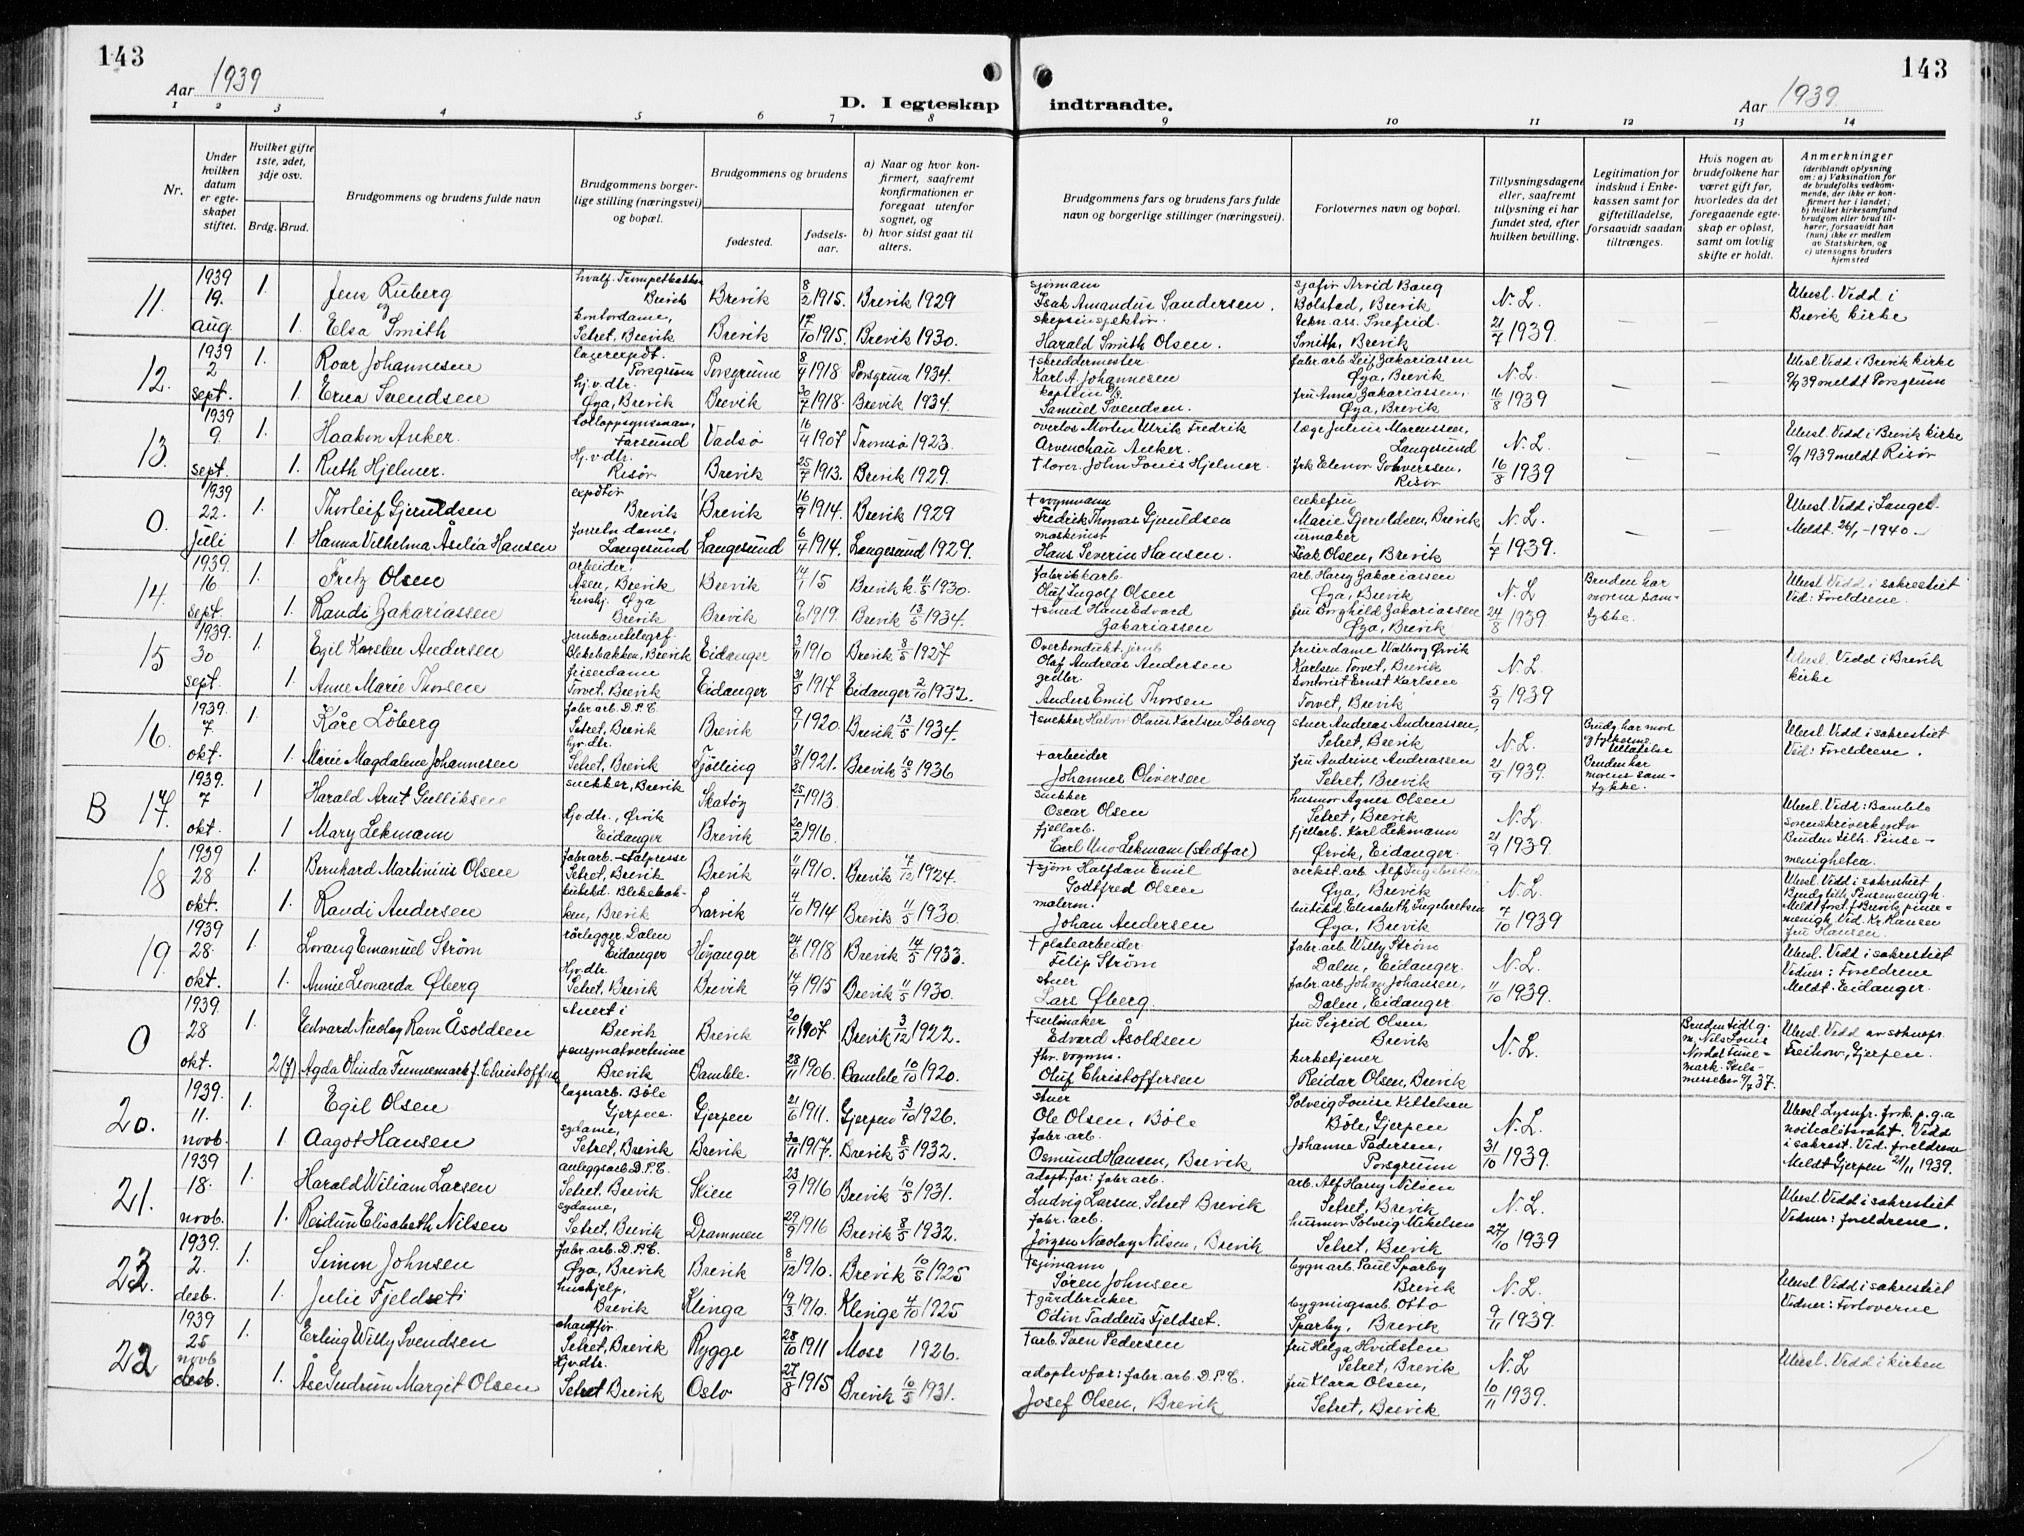 143
143
Aar 1939
Aar 1939
D. I egteskap indtraadte.
1 2 3 4 5 6 7 8 9 10 11 12 13 14
Nr.
Under hvilken datum er egteskapet stiftet.
Hvilket gifte 1ste, 2det, 3dje osv.
Brdg. Brud.
Brudgommens og brudens fulde navn
Brudgommens borgerlige stilling (næringsvei) og bopæl.
Brudgommens og brudens
fødested.
fødselsaar.
a) Naar og hvor konfirmert, saafremt konfirmationen er foregaat utenfor sognet, og
b) hvor sidst gaat til alters.
Brudgommens fars og brudens fars fulde navn og borgerlige stillinger (næringsvei).
Forlovernes navn og bopæl.
Tillysningsdagene eller, saafremt tillysning ei har fundet sted, efter hvilken bevilling.
Legitimation for indskud i Enkekassen samt for giftetilladelse, forsaavidt saadan tiltrænges.
Hvis nogen av brudefolkene har været gift før, hvorledes da det foregaaende egteskap er opløst, samt om lovlig skifte er holdt.
Anmerkninger (deriblandt oplysning om: a) Vaksination for de brudefolks vedkommende, der ikke er konfirmert her i landet; b) hvilket kirkesamfund brudgom eller brud tilhører, forsaavidt han (hun) ikke er medlem av Statskirken, og c) utensogns bruders hjemsted
11. 1939 19. aug.
1. Jens Ruberg hvalf. Trompetbakken Brevik Brevik 8/2 1915. Brevik 1929
og
1. Elsa Smith kontordame, Setret, Brevik Brevik 17/10 1915. Brevik 1930.
sjømann Isak Amandus Sandersen.
skipsinspektør. Harald Smith Olsen.
sjåfør Arvid Bang Bolstad, Brevik
tekn. ass. Snefrid. Smith, Brevik
N. L. 21/7 1939.
Uhesl. Vedd i Brevik kirke
12. 1939 2 sept.
1. Roar Johannesen lagerexpdt. Porsgrunn Porsgrunn 8/4 1918. Porsgrunn 1934.
1. Erna Svendsen hj.v.dtr. Øya, Brevik Brevik 20/7 1918. Brevik 1934.
† skreddermester Karl A. Johannesen
kaptein Samuel Svendsen.
fabr. arb. Leif Zakariassen Øya, Brevik
fru Anna Zakariassen, Øya, Brevik
N. L. 16/8 1939
Uhesl Vedd i Brevik kirke 9/9 39 meldt Porsgrunn
13. 1939 9. sept.
1. Haakon Anker. tolloppsynsmann, Farsund Vadsø 16/4 1907 Tromsø 1923.
1. Ruth Hjelmer. Hj.v.dtr. Risør Brevik 25/7 1913. Brevik 1929.
overlos Morten Ulrik Fredrik Anker.
† lærer John Louis Hjelmer.
læge Julius Langesund
frk Elenor Risør
N. L. 16/8 1939
Uhesl. Vedd i Brevik kirke 9/9 1939 meldt Risør
0. 1939 22. juli
1. Thorleif Gjeruldsen expdtør Brevik Brevik 16/9 1914. Brevik 1929
1. Hanna Vilhelma Åsilia Hansen forretn.dame, Langesund Langesund 6/4 1914. Langesund 1929.
† vognmann Fredrik Thomas Gjeruldsen
maskinist Hans Severin Hansen.
enkefru Marie Gjeruldsen, Brevik
urmaker Isak Olsen, Brevik
N. L. 1/7 1939.
Uhesl. Vedd i Langes. Meldt. 26/1 - 1940
14. 1939. 16 sept.
1. Fretz Olsen arbeider Åsen, Brevik Brevik 14/7 15 Brevik k. 11/5 1930.
1. Randi Zakariassen hushj. Øya Brevik Brevik 9/6 1919. Brevik 13/5 1934.
fabrikkarb. Oluf Ingolf Olsen
† smed Hans Edvard Zakariassen
arb. Harry Zakariassen Øya, Brevik
fru Borghild Zakariassen Øya, Brevik
N. L. 24/8 1939
Bruden har morens samtykke.
Uhesl Vedd i sakrestiet Vid: Foreldrene.
15 1939. 30 sept.
1. Egil Karelen Andersen jernbanetelegrf. Blekebakken, Brevik Eidanger 3/11 1910 Brevik 8/5 1927
1. Anne Marie Thorsen friserdame Torvet, Brevik Eidanger 31/5 1917 Eidanger 2/10 1932.
Overkondukt. jernb Olaf Andreas Andersen
Anders Emil Thorsen
friserdame Walborg Ørvik Karlsen Torvet, Brevik
Ernst Karlsen Torvet, Brevik
N. L. 5/9 1939
Uhesl. Vedd i Brevik kirke
16. 1939. 7 okt.
1. Kåre Löberg fabr.arb. D.P.C. Setret, Brevik Brevik 9/1 1920. Brevik 13/5 1934.
1. Marie Magdalene Johannesen hj.v.dtr. Setret, Brevik Tjølling 31/8 1921. Brevik 10/5 1936
† snekker Halvor Olaus Karlsen Löberg
† arbeider Johannes Oliversen
stuer Andreas Andreassen, Setret, Brevik
fru Andrine Andreassen Setret, Brevik
N. L. 21/9 1939.
Brudg. har mor og fylkesms. tillatelse Bruden har morens samtykke.
Uhesl Vedd i sakrestiet Vid: Foreldrene.
B 17. 1939. 7 okt.
1 Harald Arnt Gulliksen snekker, Brevik Skatøy 25/1 1913.
1 Mary Lekmann Hjv.dtr., Ørvik Eidanger Brevik 20/2 1916.
snekker Oscar Olsen
fjellarb. Carl Uno Lekmann (stedfar)
husmor Agnes Olsen Setret, Brevik
fjellarb. Karl Lekmann Ørvik, Eidanger.
N. L. 21/9 1939.
Uhesl. Vedd: Bamble sorenskriverkontor Bruden tilh. Pinsemenigheten.
18 1939 28 okt.
1. Bernhard Martinius Olsen fabr.arb. stolpresse Setret, Brevik Brevik 11/4 1910. Brevik 7/12 1924.
1. Randi Andersen butikkd. Blekebakken, Brevik Larvik 4/10 1914 Brevik 11/5 1930
† sjøm Halfdan Emil Godtfred Olsen
malerm. Johan Andersen
verkst. arb. Alf Ingebretsen Øya, Brevik
butikkd Elisabeth Ingebretsen Øya, Brevik
N. L. 7/10 1939
Uhesl. Vedd i sakrestiet Brudg tilh. Pinsemenigh. Meldt forst. f Brevik pinsemenigh. Vid. Kr. Hansen fru Hansen
19. 1939 28. okt.
1. Lorang Emanuel Strøm rørlegger, Dalen Eidanger Høyanger 24/6 1918 Brevik 14/5 1933.
1. Annie Leonarda Øberg Hjv.dtr. Setret, Brevik Brevik 14/9 1915 Brevik 11/5 1930.
† platearbeider Filip Strøm
stuer Lars Øberg.
fabr. arb. Willy Strøm Dalen, Eidanger.
fabr. arb Johan Johansen, Dalen, Eidanger
N. L. 11/10 1939.
Uhesl. Vedd i sakrestiet Vidner: Foreldrene Meldt Eidanger.
0 1939. 28 okt.
1. Edvard Nicolay Ravn Åsoldsen stuert i Brevik Brevik 20/11 1907 Brevik 3/12 1922.
2(g) Agda Olinda Tunnemark f. Christoffersen pensjonatvertinne Brevik Bamble. 28/11 1906. Bamble 10/10 1920.
† seilmaker Edvard Åsoldsen
fhv. vognm. Oluf Christoffersen
fru Sigrid Olsen Brevik
kirketjener Reidar Olsen, Brevik
N. L.
Bruden tidl. g. m. Nils Louis Nordal Tunemark. 37.
Uhesl. Vedd av soknepr. Freihow, Gjerpen.
20. 1939. 11. novb.
1. Egil Olsen lagerarb. Böle Gjerpen. Gjerpen 21/6 1911. Gjerpen 3/10 1926.
1. Aagot Hansen sydame, Setret, Brevik Brevik 30/11 1917. Brevik 8/5 1932.
stuer Ole Olsen, Böle
fabr. arb. Osmund Hansen, Brevik
Solveig Louise Kittelsen Böle, Gjerpen
Johanne Pedersen, Porsgrunn
N. L. 31/10 1939.
Uhesl. Lysnfr. fork. p.g.a nøitralitetsvakt. Vedd i sakrest. Vid. foreldrene Meldt Gjerpen 21/11 1939.
21. 1939 18. novb.
1. Harald Wiliam Larsen anleggsarb D.P.C. Setret. Brevik Skien 23/9 1916 Brevik 10/5 1931.
1. Reidun Elisabeth Nilsen sydame, Setret, Brevik Drammen 29/9 1916 Brevik 8/5 1932.
adopt. far: fabr. arb. Ludvig Larsen, Setret Brevik
fabr. arb. Jørgen Nicolay Nilsen, Brevik
arb. Alf Harry Nilsen Setret, Brevik
husmor Solveig Mikelsen Setret, Brevik
N. L. 27/10 1939
Uhesl. Vedd i sakrestiet Vidner: foreldrene.
23. 1939. 2. desb.
1. Simon Johnsen fabr. arb. D.P.C. Øya, Brevik Brevik 8/12 1910. Brevik 10/8 1925
1. Julie Fjeldseti hushjelp, Brevik Klinga 19/3 1910. Klinga 4/10 1925
† sjømann Søren Johnsen
† gårdbruker Odin Taddeus Fjeldset.
bygn arb. Paul Sparby Brevik
bygningsarb. Otto Sparby, Brevik
N. L. 9/11 1939.
Uhesl Vedd i sakrestiet Vidner: Forloverne
22 1939 25 novb desb.
1. Erling Willy Svendsen chauffør Setret, Brevik Rygge 28/10 1911 Moss 1926.
1. Åse Gudrun Margit Olsen Hjv.dtr. Setret Brevik Oslo 27/8 1915 Brevik 10/5 1931.
† arb. Sven Pedersen
adoptivfar: fabr. arb. D.P.C. Josef Olsen, Brevik
fru Helga Hvidsten Setret, Brevik
fru Klara Olsen, Setret, Brevik
N. L. 10/11 1939.
Uhesl. Vedd i kirken